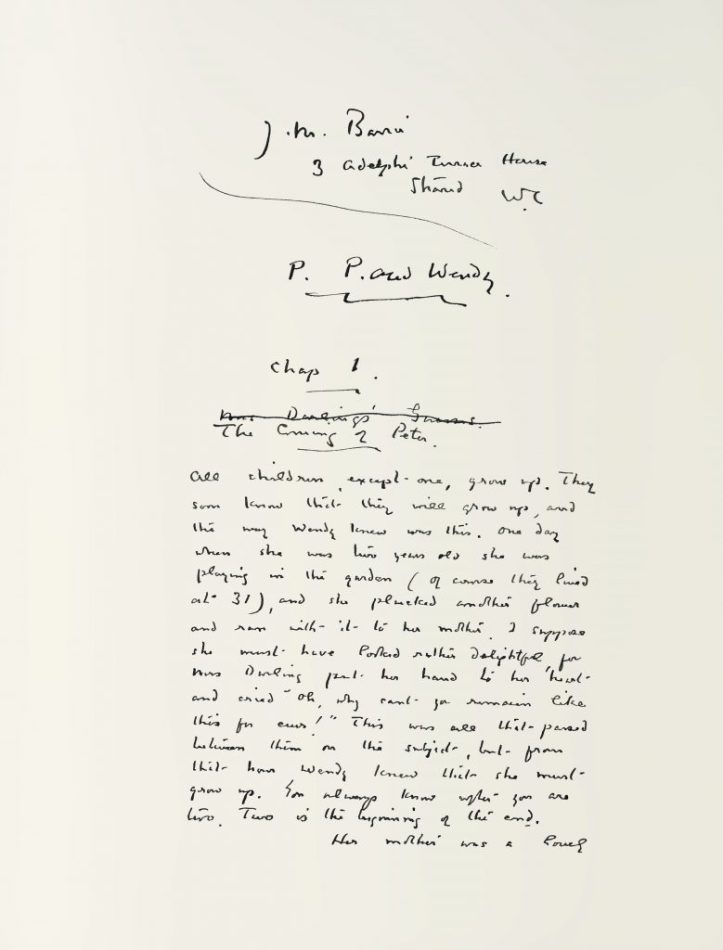 J. M. Barrie
3 Adelphi Terrace House
Strand W.C
P. P. and Wendy.
Chap 1.
Mrs Darlings'
The Coming of Peter.
All children, except one, grow up. They
soon know that they will grow up, and
the way Wendy knew was this. One day
when she was two years old she was
playing in the garden (of course they lived
at 31), and she plucked another flower
and ran with it to her mother. I suppose
she must have looked rather delightful, for
Mrs Darling put her hand to her heart
and cried "Oh, why cant you remain like
this for ever!" This was all that passed
between them on the subject, but from
that hour Wendy knew that she must
grow up. You always know after you are
two. Two is the beginning of the end.
Her mother was a lovely